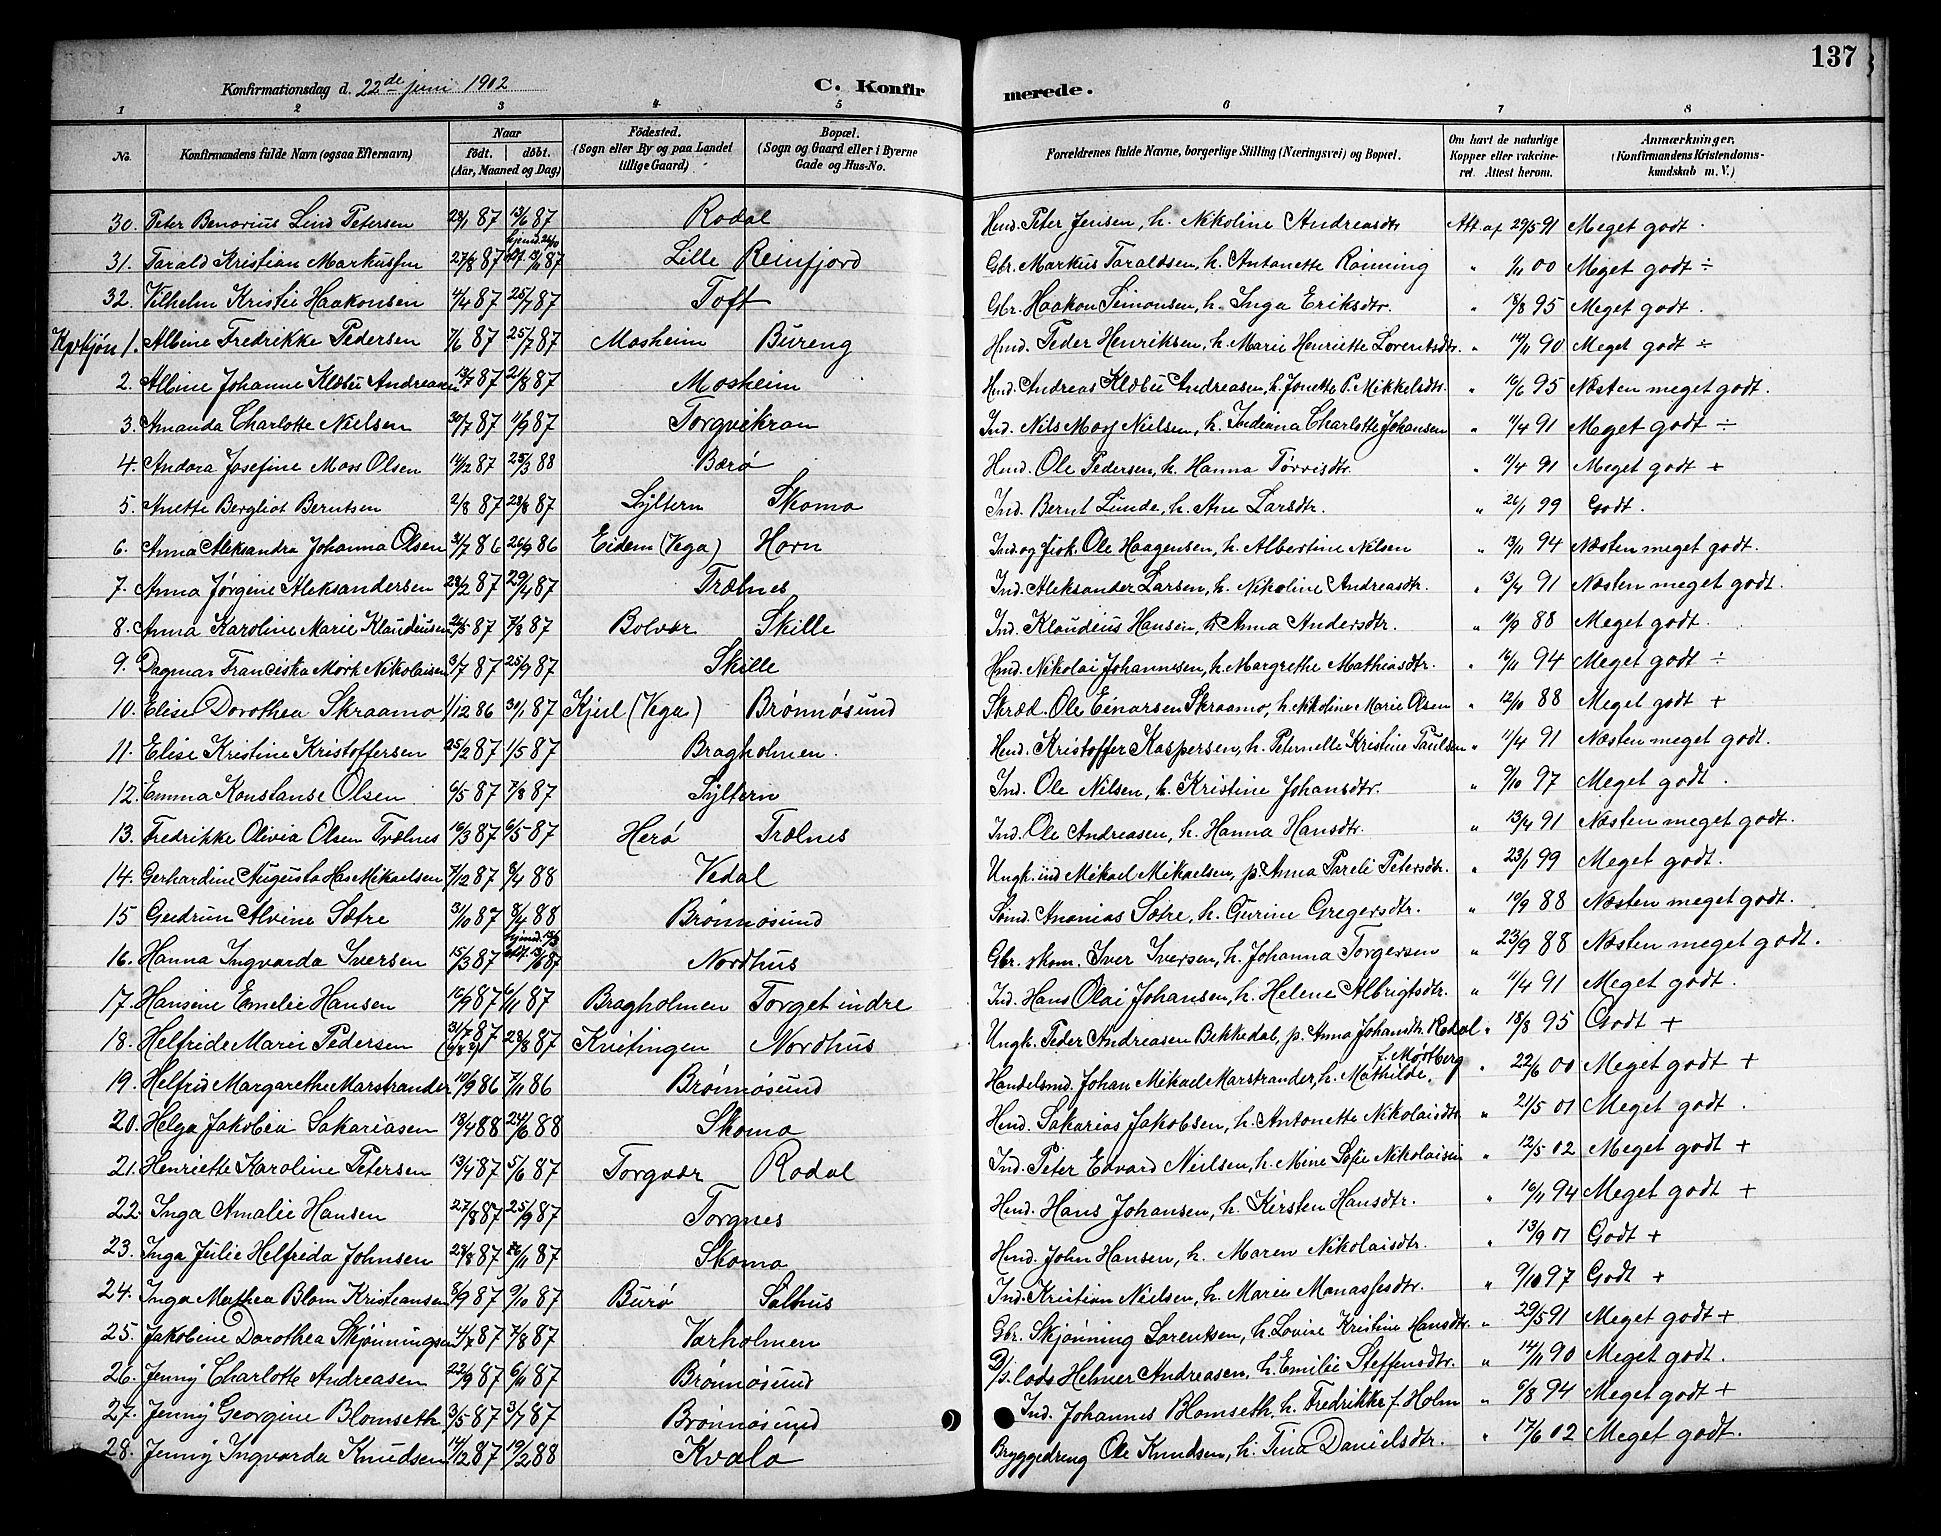 137
Konfirmationsdag d. 22de juni 1902 C. Konfirmerede.
1 2 3 4 5 6 7 8
No. Konfirmandens fulde Navn (ogsaa Efternavn) Naar født. døbt. (Aar, Maaned og Dag) Fødested. (Sogn eller By og paa Landet tillige Gaard) Bopæl. (Sogn og Gaard eller i Byerne Gade og Hus-No. Forældrenes fulde Navne, borgerlige Stilling (Næringsvei) og Bopæl. Om havt de naturlige Kopper eller vakcineret. Attest herom. Anmærkninger. (Konfirmandens Kristendomskundskab m. V.)
30. Peter Benarius Lind Petersen 28/1 87 13/6 87 Rodal Hmd. Peter Jensen, h. Nikoline Andreasdtr Att. af 29/5 91 Meget godt.
31. Tarald Kristian Markussen 27/8 87 13/11 87 Lille Reinfjord Gbr. Markus Taraldsen, h. Antonette Rønning " 1/11 00 Meget godt ÷
32. Vilhelm Kristie Haakonsen 4/4 87 25/7 87 Toft Gbr. Haakon Simonsen, h. Inga Eriksdtr. " 18/8 95 Meget godt.
Kvkjøn 1. Albine Fredrikke Pedersen 7/6 87 25/7 87 Mosheim Bureng Hmd. Peder Henriksen, h. Marie Henriette Lorentsdtr. " 14/11 90 Meget godt ÷
2. Albine Johanne Klæbu Andreasen 13/7 87 21/8 87 Mosheim Hmd. Andreas Klæbu Andreasen, h. Jonette P. Mikkelsdtr. " 16/6 95 Næsten meget godt.
3. Amanda Charlotte Nielsen 30/7 87 11/9 87 Torgvikran Ind. Nils Moss Nielsen, h. Indiana Charlotte Johansen " 11/4 91 Meget godt ÷
4. Andora Josefine Moss Olsen 14/2 87 25/3 88 Bærø Hmd. Ole Pedersen, h. Hanna Tørrisdtr. " 11/4 91 Meget godt +
5. Anette Bergliot Berntsen 2/8 87 28/8 87 Syltern Skomo Ind. Bernt Lunde, h. Ane Larsdtr. " 26/1 99 Godt.
6. Anna Aleksandra Johanna Olsen 31/7 86 26/9 86 Eidem (Vega) Horn Ind. og fisk. Ole Haagensen, h. Albertine Nilsen " 13/11 94 Næsten meget godt.
7. Anna Jørgine Aleksandersen 28/2 87 29/4 87 Trælnes Ind. Aleksander Larsen, h. Nikoline Andreasdtr. " 13/4 91 Næsten meget godt.
8. Anna Karoline Marie Klaudiusen 26/5 87 7/8 87 Bolvær Skille Ind. Klaudius Hansen, h. Anna Andersdtr. " 10/9 88 Meget godt.
9. Dagmar Franciska Mørk Nikolaisen 3/7 87 25/9 87 Skille Hmd. Nikolai Johannesen, h. Margrethe Mathiasdtr. " 16/11 94 Meget godt ÷
10. Elise Dorothea Skraamo 1/12 86 30/1 87 Kjul (Vega) Brønnøsund Skræd. Ole Einarsen Skraamo, h. Nikoline Marie Olsen " 12/10 88 Meget godt +
11. Elise Kristine Kristoffersen 25/2 87 1/5 87 Bragholmen. Hmd. Kristoffer Kaspersen, h. Peternelle Kristine Paulsen " 11/4 91 Næsten meget godt.
12. Emma Konstanse Olsen 6/5 87 7/8 87 Syltern Ind. Ole Nilsen, h. Kristine Johansdtr. " 9/10 97 Meget godt.
13. Fredrikke Olivia Olsen Trælnes 16/3 87 6/5 87 Herø Trælnes Ind. Ole Andreasen, h. Hanna Hansdtr. " 13/4 91 Næsten meget godt.
14. Gerhardine Augusta Has Mikaelsen 7/12 87 8/4 88 Vedal Ungk. ind Mikael Mikaelsen, p. Anna Pareli Petersdtr. " 23/1 99 Meget godt.
15 Gudrun Alvine Sætre 31/10 87 8/4 88 Brønnøsund Sømd. Ananias Sætre, h. Gurine Gregersdtr. " 10/9 88 Næsten meget godt.
16. Hanna Ingvarda Iversen 15/3 87 13/6 87 Nordhus Gbr. skom. Iver Iversen, h. Johanna Torgersen " 23/9 88 Næsten meget godt.
17. Hansine Emelie Hansen 10/9 87 6/11 87 Bragholmen Torget indre Ind. Hans Olai Johansen, h. Helene Albrigtsdtr. " 11/4 91 Meget godt.
18. Helfride Marie Pedersen 31/7 87 (6/8?) 28/8 87 Kvitingen Nordhus Ungk. Peder Andreasen Bekkedal, p. Anna Johansdtr. Rodal " 18/8 95 Godt +
19. Helfrid Margarethe Marstrander 10/9 86 7/11 86 Brønnøsund Handelsmd. Johan Mikael Marstrander, h. Mathilde f. Mørtberg " 22/6 00 Meget godt +
20. Helga Jakobia Sakariasen 13/4 88 24/6 88 Skomo Hmd. Sakarias Jakobsen, h. Antonette Nikolaisdtr. " 21/5 01 Meget godt.
21. Henriette Karoline Petersen 13/4 87 5/6 87 Torgvær Rodal Ind. Peter Edvard Nielsen, h. Mine Sofie Nikolaisen " 12/5 02 Meget godt +
22. Inga Amalie Hansen 27/8 87 25/9 87 Torgnes Hmd. Hans Johansen, h. Kirsten Hansdtr. " 16/11 94 Meget godt +
23. Inga Julie Helfrida Johnsen 28/8 87 20/11 87 Skomo Hmd. John Hansen, h. Maren Nikolaisdtr. " 13/9 01 Godt +
24. Inga Mathea Blom Kristiansen 8/9 87 9/10 87 Burø Salhus Ind. Kristian Nielsen, h. Marie Manassesdtr. " 9/10 97 Godt +
25. Jakobine Dorothea Skjønningsen 4/7 87 7/8 87 Varholmen Gbr. Skjønning Lorentsen, h. Lovise Kristine Hansdtr. " 29/5 91 Meget godt +
26. Jenny Charlotte Andreasen 22/9 87 6/11 87 Brønnøsund D/s. lods Helmer Andreasen, h. Emilie Steffensdtr. " 14/11 90 Meget godt.
27. Jenny Georgine Blomseth 3/5 87 3/7 87 Brønnøsund Ind. Johannes Blomseth, h. Fredrikke f. Holm " 6/8 94 Meget godt +
28. Jenny Ingvarda Knudsen 14/12 87 19/2 88 Kvalø Bryggedreng Ole Knudsen, h. Tina Danielsdtr. " 17/6 02 Meget godt.